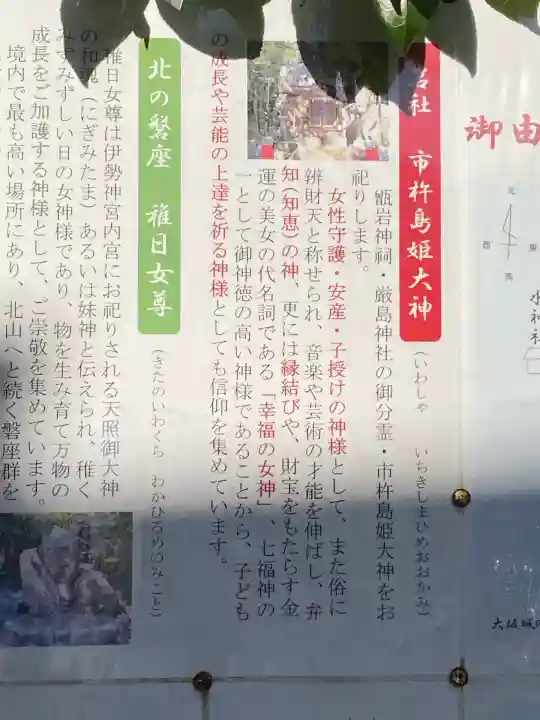 御由
北
西
東
南
水神社
大阪城
岩社 市杵島姫大神
(いわしゃ いちきしまひめおおかみ)
甑岩神祠・厳島神社の御分霊・市杵島姫大神をお
祀りします。
女性守護・安産・子授けの神様として、また俗に
辨財天と称せられ、音楽や芸術の才能を伸ばし、弁
知(知恵)の神、更には縁結びや、財宝をもたらす金
運の美女の代名詞である「幸福の女神」、七福神の
一として御神徳の高い神様であることから、子ども
の成長や芸能の上達を祈る神様としても信仰を集めています。
北の磐座 稚日女尊
(きたのいわくら わかひるめのみこと)
稚日女尊は伊勢神宮内宮にお祀りされる天照御大神
の和魂(にぎみたま)あるいは妹神と伝えられ、稚く
みずみずしい日の女神様であり、物を生み育て万物の
成長をご加護する神様として、ご崇敬を集めています。
境内で最も高い場所にあり、北山へと続く磐座群を